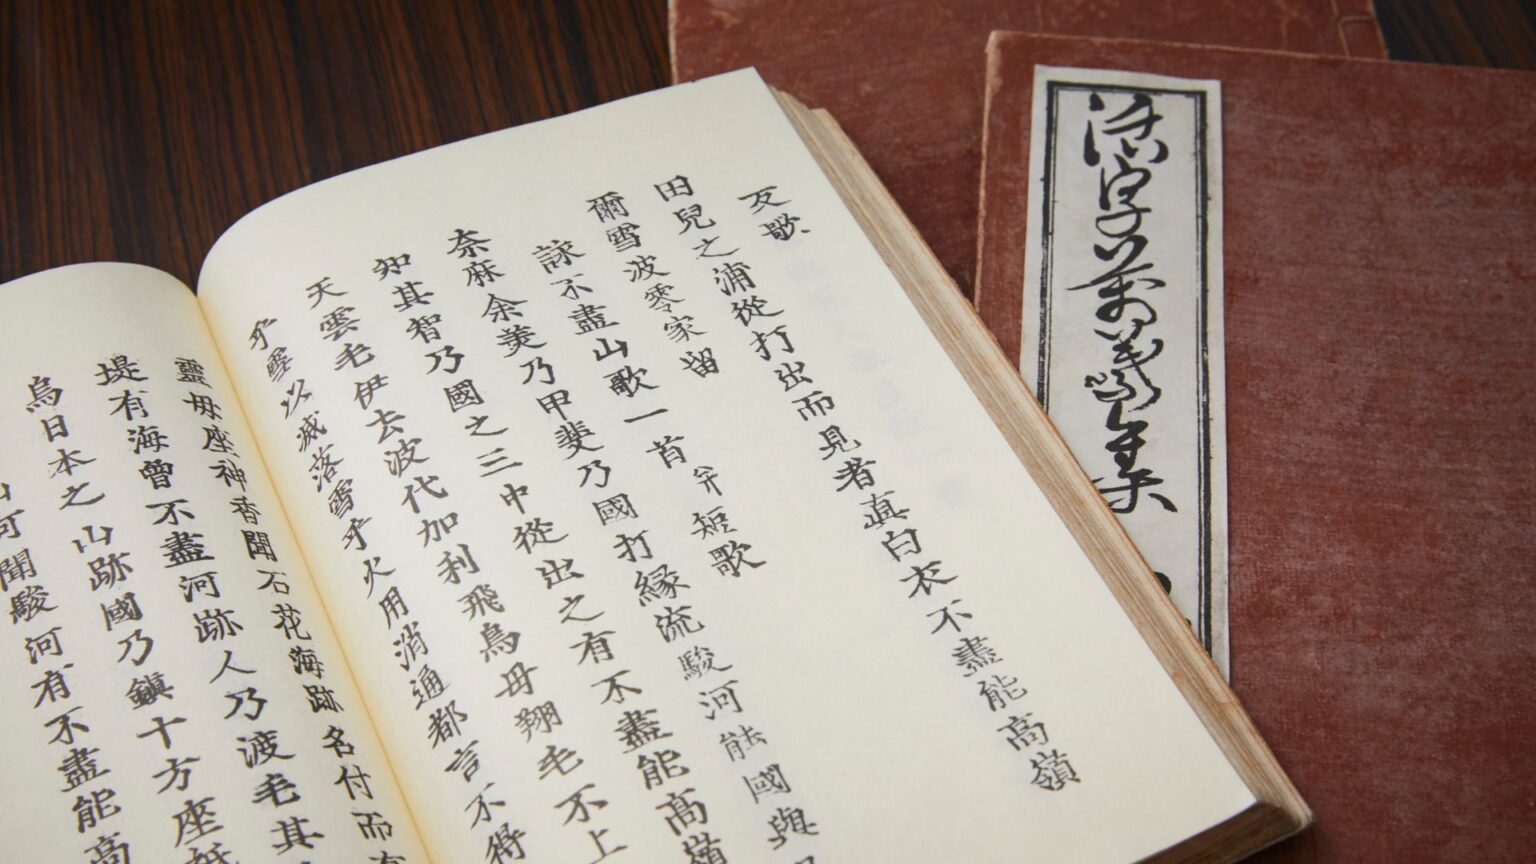 反歌
田兒之浦從打出而見者真白衣不盡能高嶺
爾雪波零家留
詠不盡山歌一首 并短歌
奈麻余美乃甲斐乃國打縁流駿河能國與
知其智乃國之三中從出之有不盡能高嶺
天雲毛伊去波代加利飛鳥母翔毛不上
乎雪以滅落雪乎火用消通都言不得
靈母座神香聞石花海跡名付而有
堤有海曾不盡河跡人乃渡毛其
烏日本之山跡國乃鎮十方座祇
山可聞駿河有不盡能高
字萬葉集